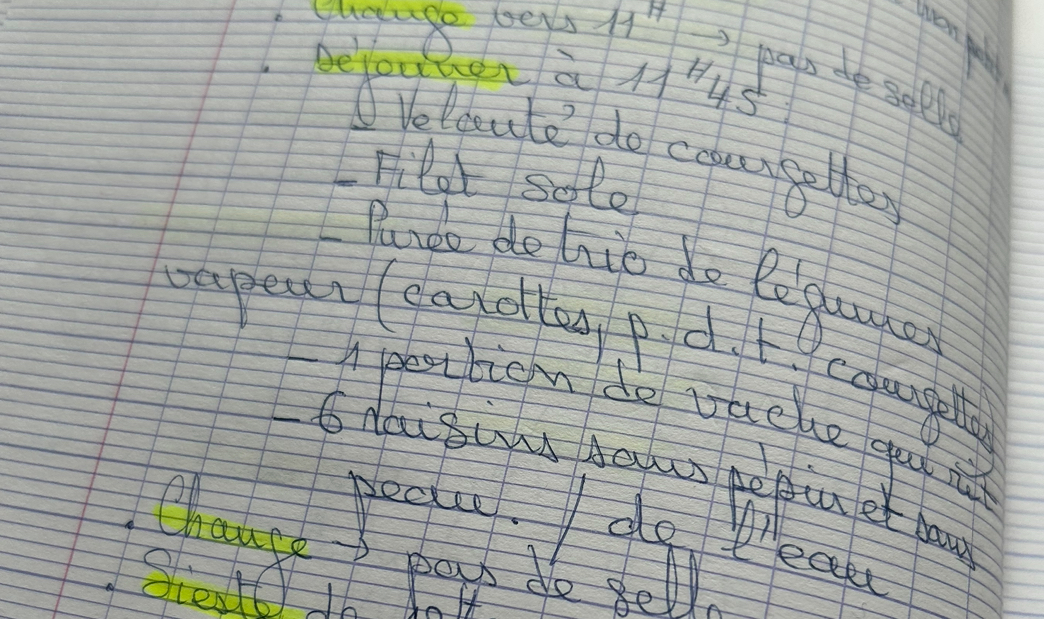 . Change vers 11H → pas de selle
. Déjeuner à 11H45.
Velouté de courgettes
- Filet sole
- Purée de trio de légumes
vapeur (carottes, p.d.t. courgettes
- 1 portion de vache qui rit
- 6 raisins sans pépin et sans
peau. / de l'eau
. Change → pas de selle
. Sieste de